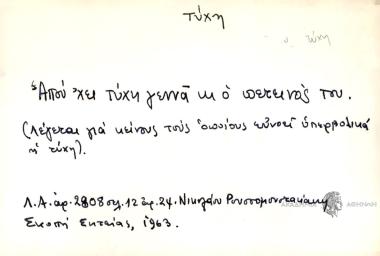 τύχη
υ. τύχη
Ἀπού 'χει τύχη γεννᾶ κι ὁ πετεινός του.
(Λέγεται γιά κείνους τούς ὁποίους εὐνοεῖ ὑπερβολικά
ἡ τύχη).
Λ.Α. ἀρ. 2808 σελ. 12 ἀρ. 24. Νικολάου Ρουσσομουστακάκη
ΑΚΑΔΗΜΙΑ ΑΘΗΝΩΝ
Σκοπή Σητείας, 1963.